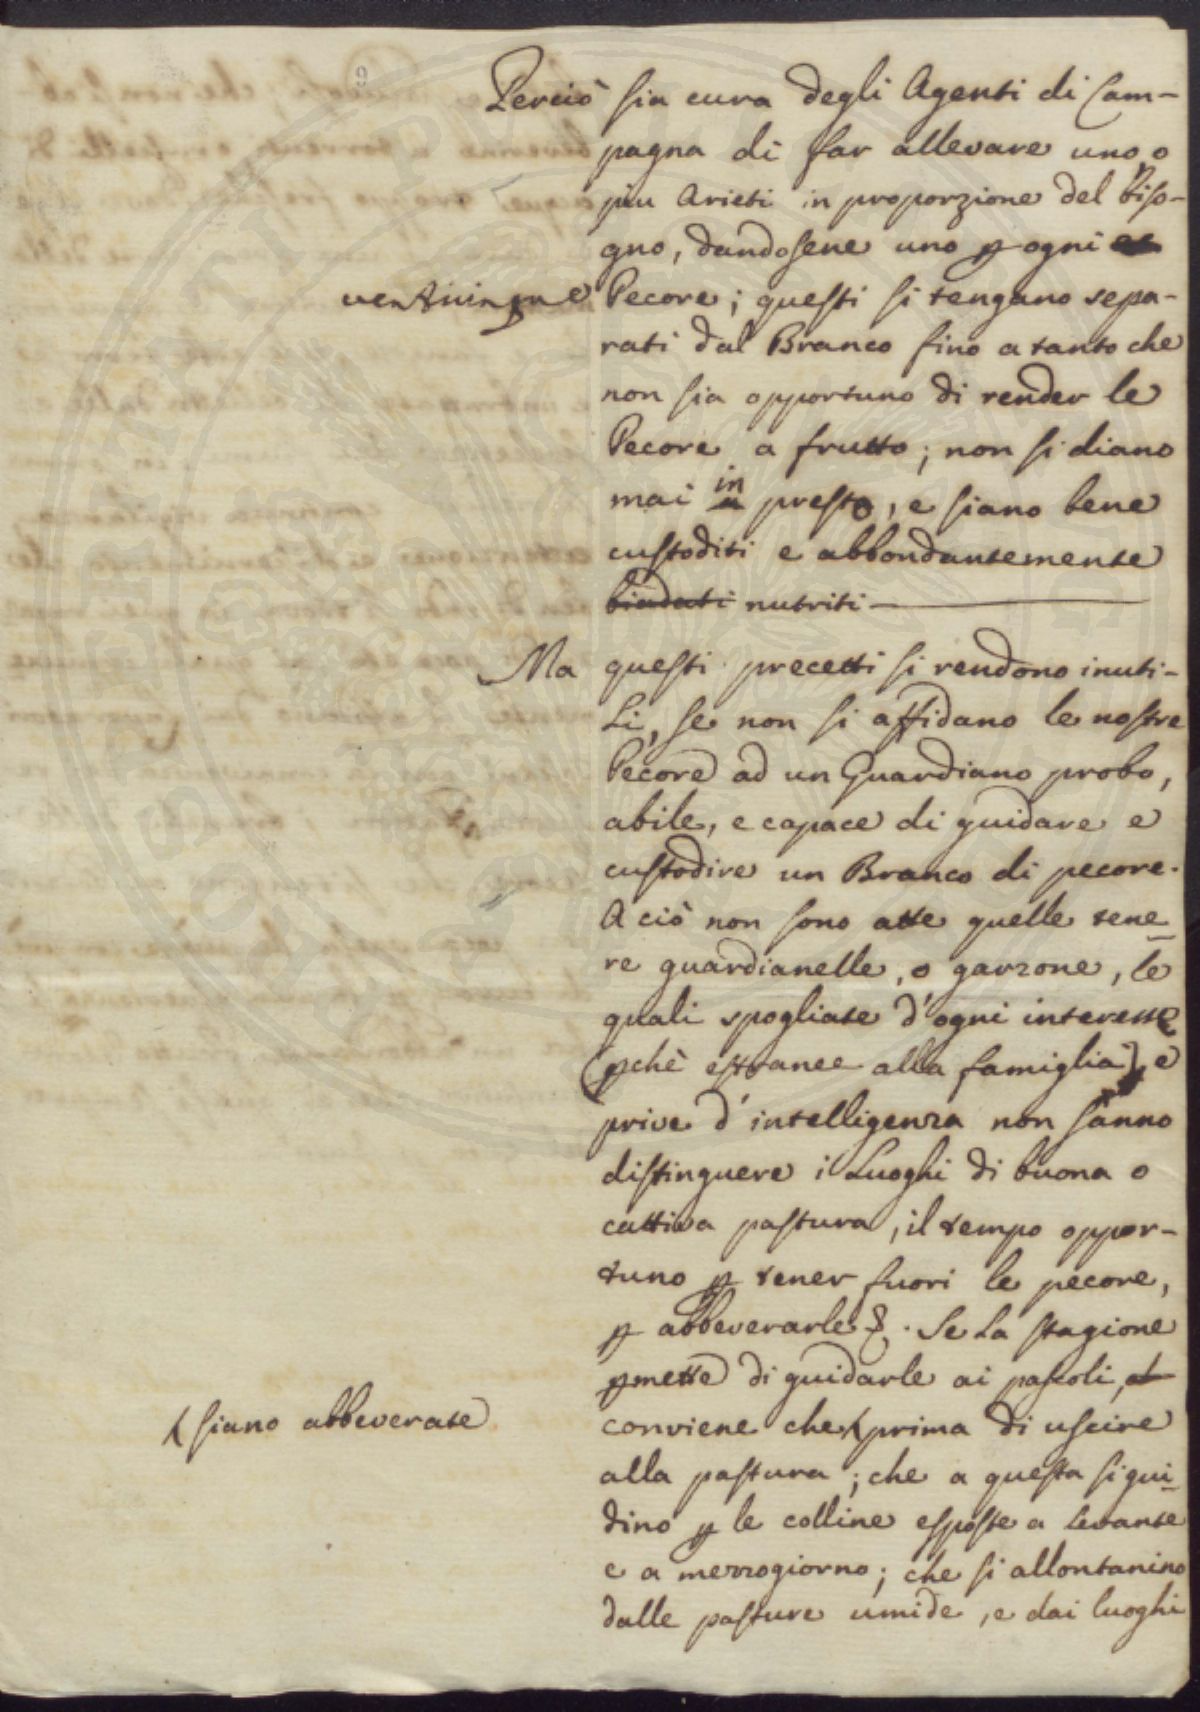 9
Perciò sia cura degli Agenti di Cam-
pagna di far allevare uno, o
piu Arieti in proporzione del biso-
gno, dandosene uno p ogni
venticinque Pecore; questi si tengano sepa-
rati dal Branco fino a tanto che
non sia opportuno di render le
Pecore a frutto; non si diano
mai in presto, e siano bene
custoditi e abbondantemente
biadati nutriti —
Ma questi precetti si rendono inuti-
li, se non si affidano le nostre
Pecore ad un Guardiano probo,
abile, e capace di guidare e
custodire un Branco di pecore.
A ciò non sono atte quelle tene
re guardianelle, o garzone, le
quali spogliate d'ogni interesse
(pchè estranee alla famiglia), e
prive d'intelligenza non sanno
distinguere i Luoghi di buona o
cattiva pastura, il tempo oppor-
tuno p tener fuori le pecore,
p abbeverarle &. Se la stagione
pmette di guidarle ai pascoli,
(siano abbeverate conviene che (prima di uscire
alla pastura; che a questa si gui-
dino p le colline esposte a levante
e a mezzogiorno; che si allontanino
dalle pasture umide, e dai luoghi